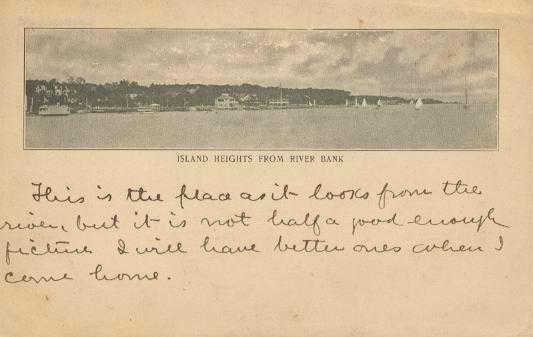 ISLAND HEIGHTS FROM RIVER BANK
This is the place as it looks from the
river, but it is not half a good enough
picture I will have better ones when I
come home.